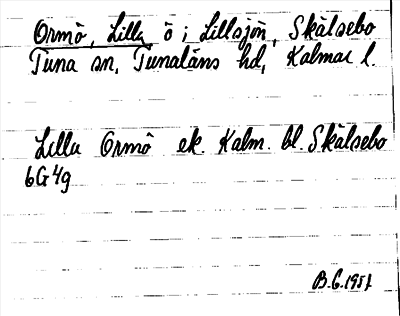 Ormö, Lilla ö i Lillsjön, Skälsebo
Tuna sn, Tunaläns hd, Kalmar l.
Lilla Ormö ek. Kalm. bl. Skälsebo
6G4g
B.G. 1951